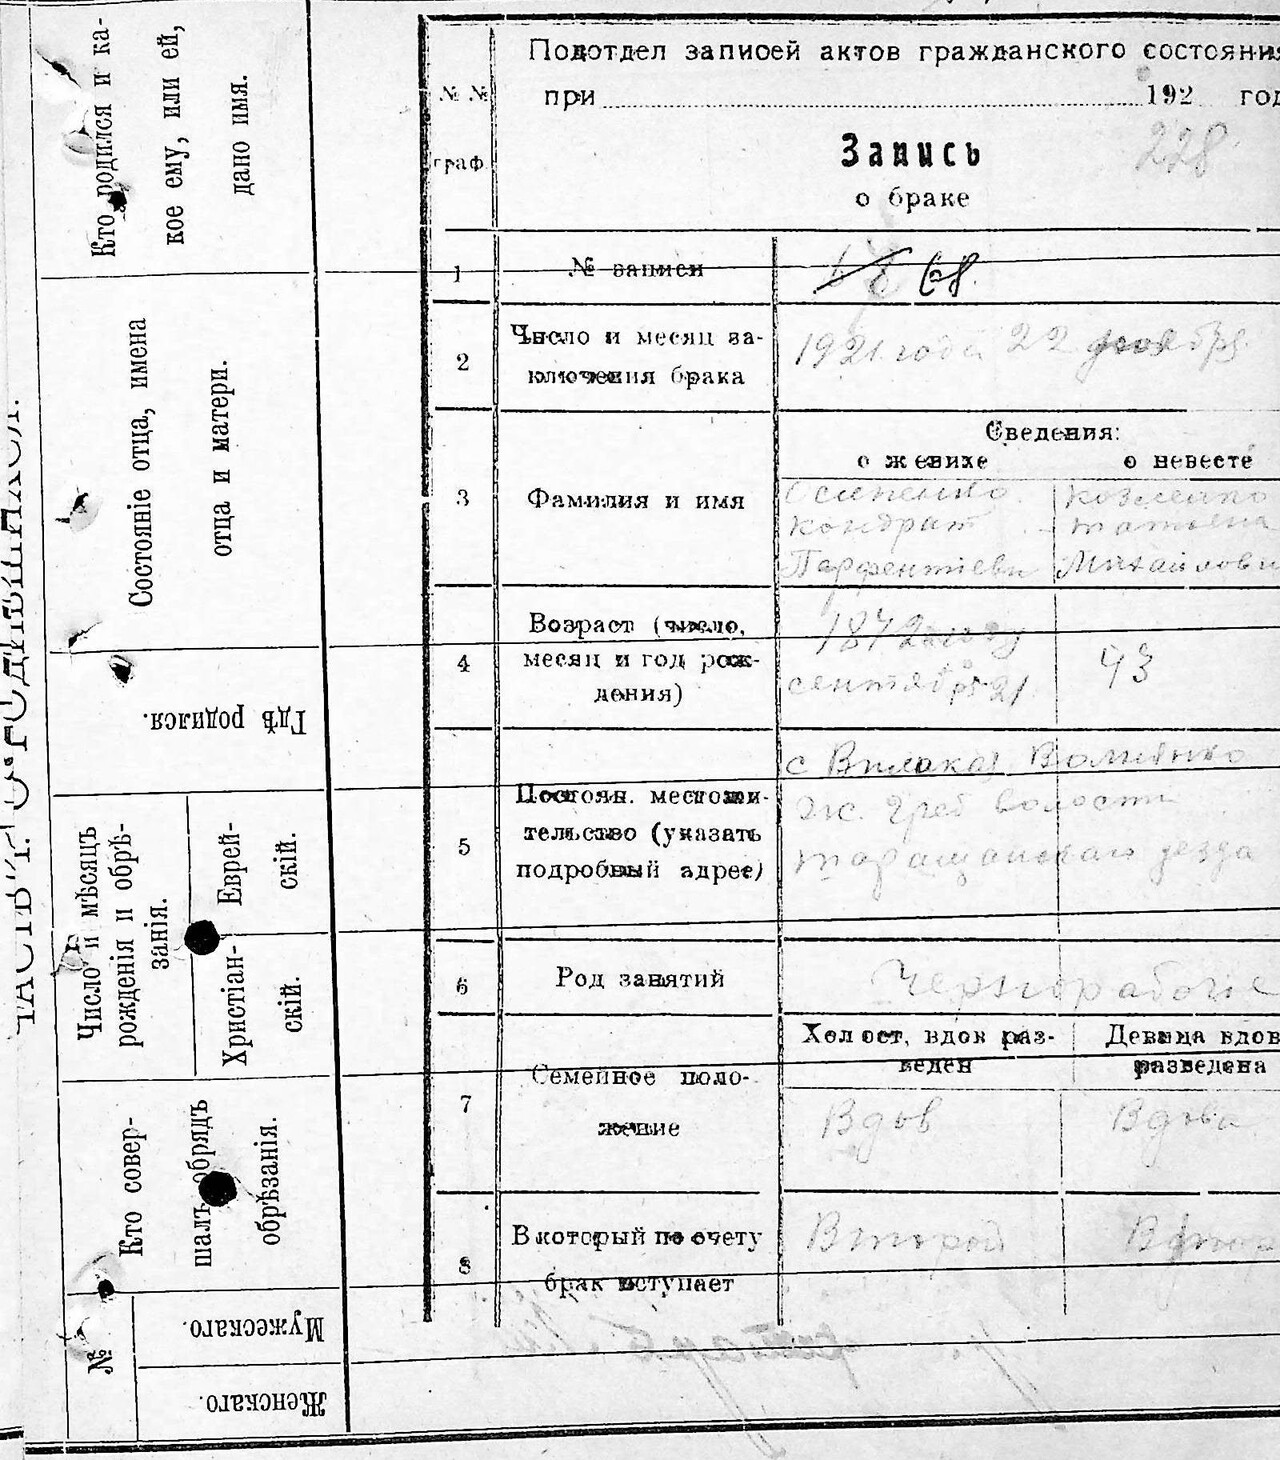 Кто родился и ка-
кое ему, или ей,
дано имя.
Состояніе отца, имена
отца и матери.
Гдѣ родился.
Число и мѣсяцъ
рожденія и обрѣ-
занія.
Еврей-
скій.
Христіан-
скій.
Кто совер-
шалъ обрядъ
обрѣзанія.
№
Мужескаго.
Женскаго.
Подотдел записей актов гражданского состояния
при 192 год
№№
граф.
Запись
о браке
228
1 № записи 68
2 Число и месяц за-
ключения брака
1921 года 22
Сведения:
о женихе о невесте
3 Фамилия и имя
Кондрат Татьяна
Парфентиеви Михайлови
4 Возраст (число,
месяц и год рож-
дения)
1872 году
сентября 21
43
5 Постоян. местожи-
тельство (указать
подробный адрес)
волости
таращанскаго уезда
6 Род занятий
Чернорабочие
7 Семейное поло-
жение
Холост, вдов раз-
веден
Девица вдов
разведена
Вдов Вдова
8 В который по счету
брак вступает
Второй